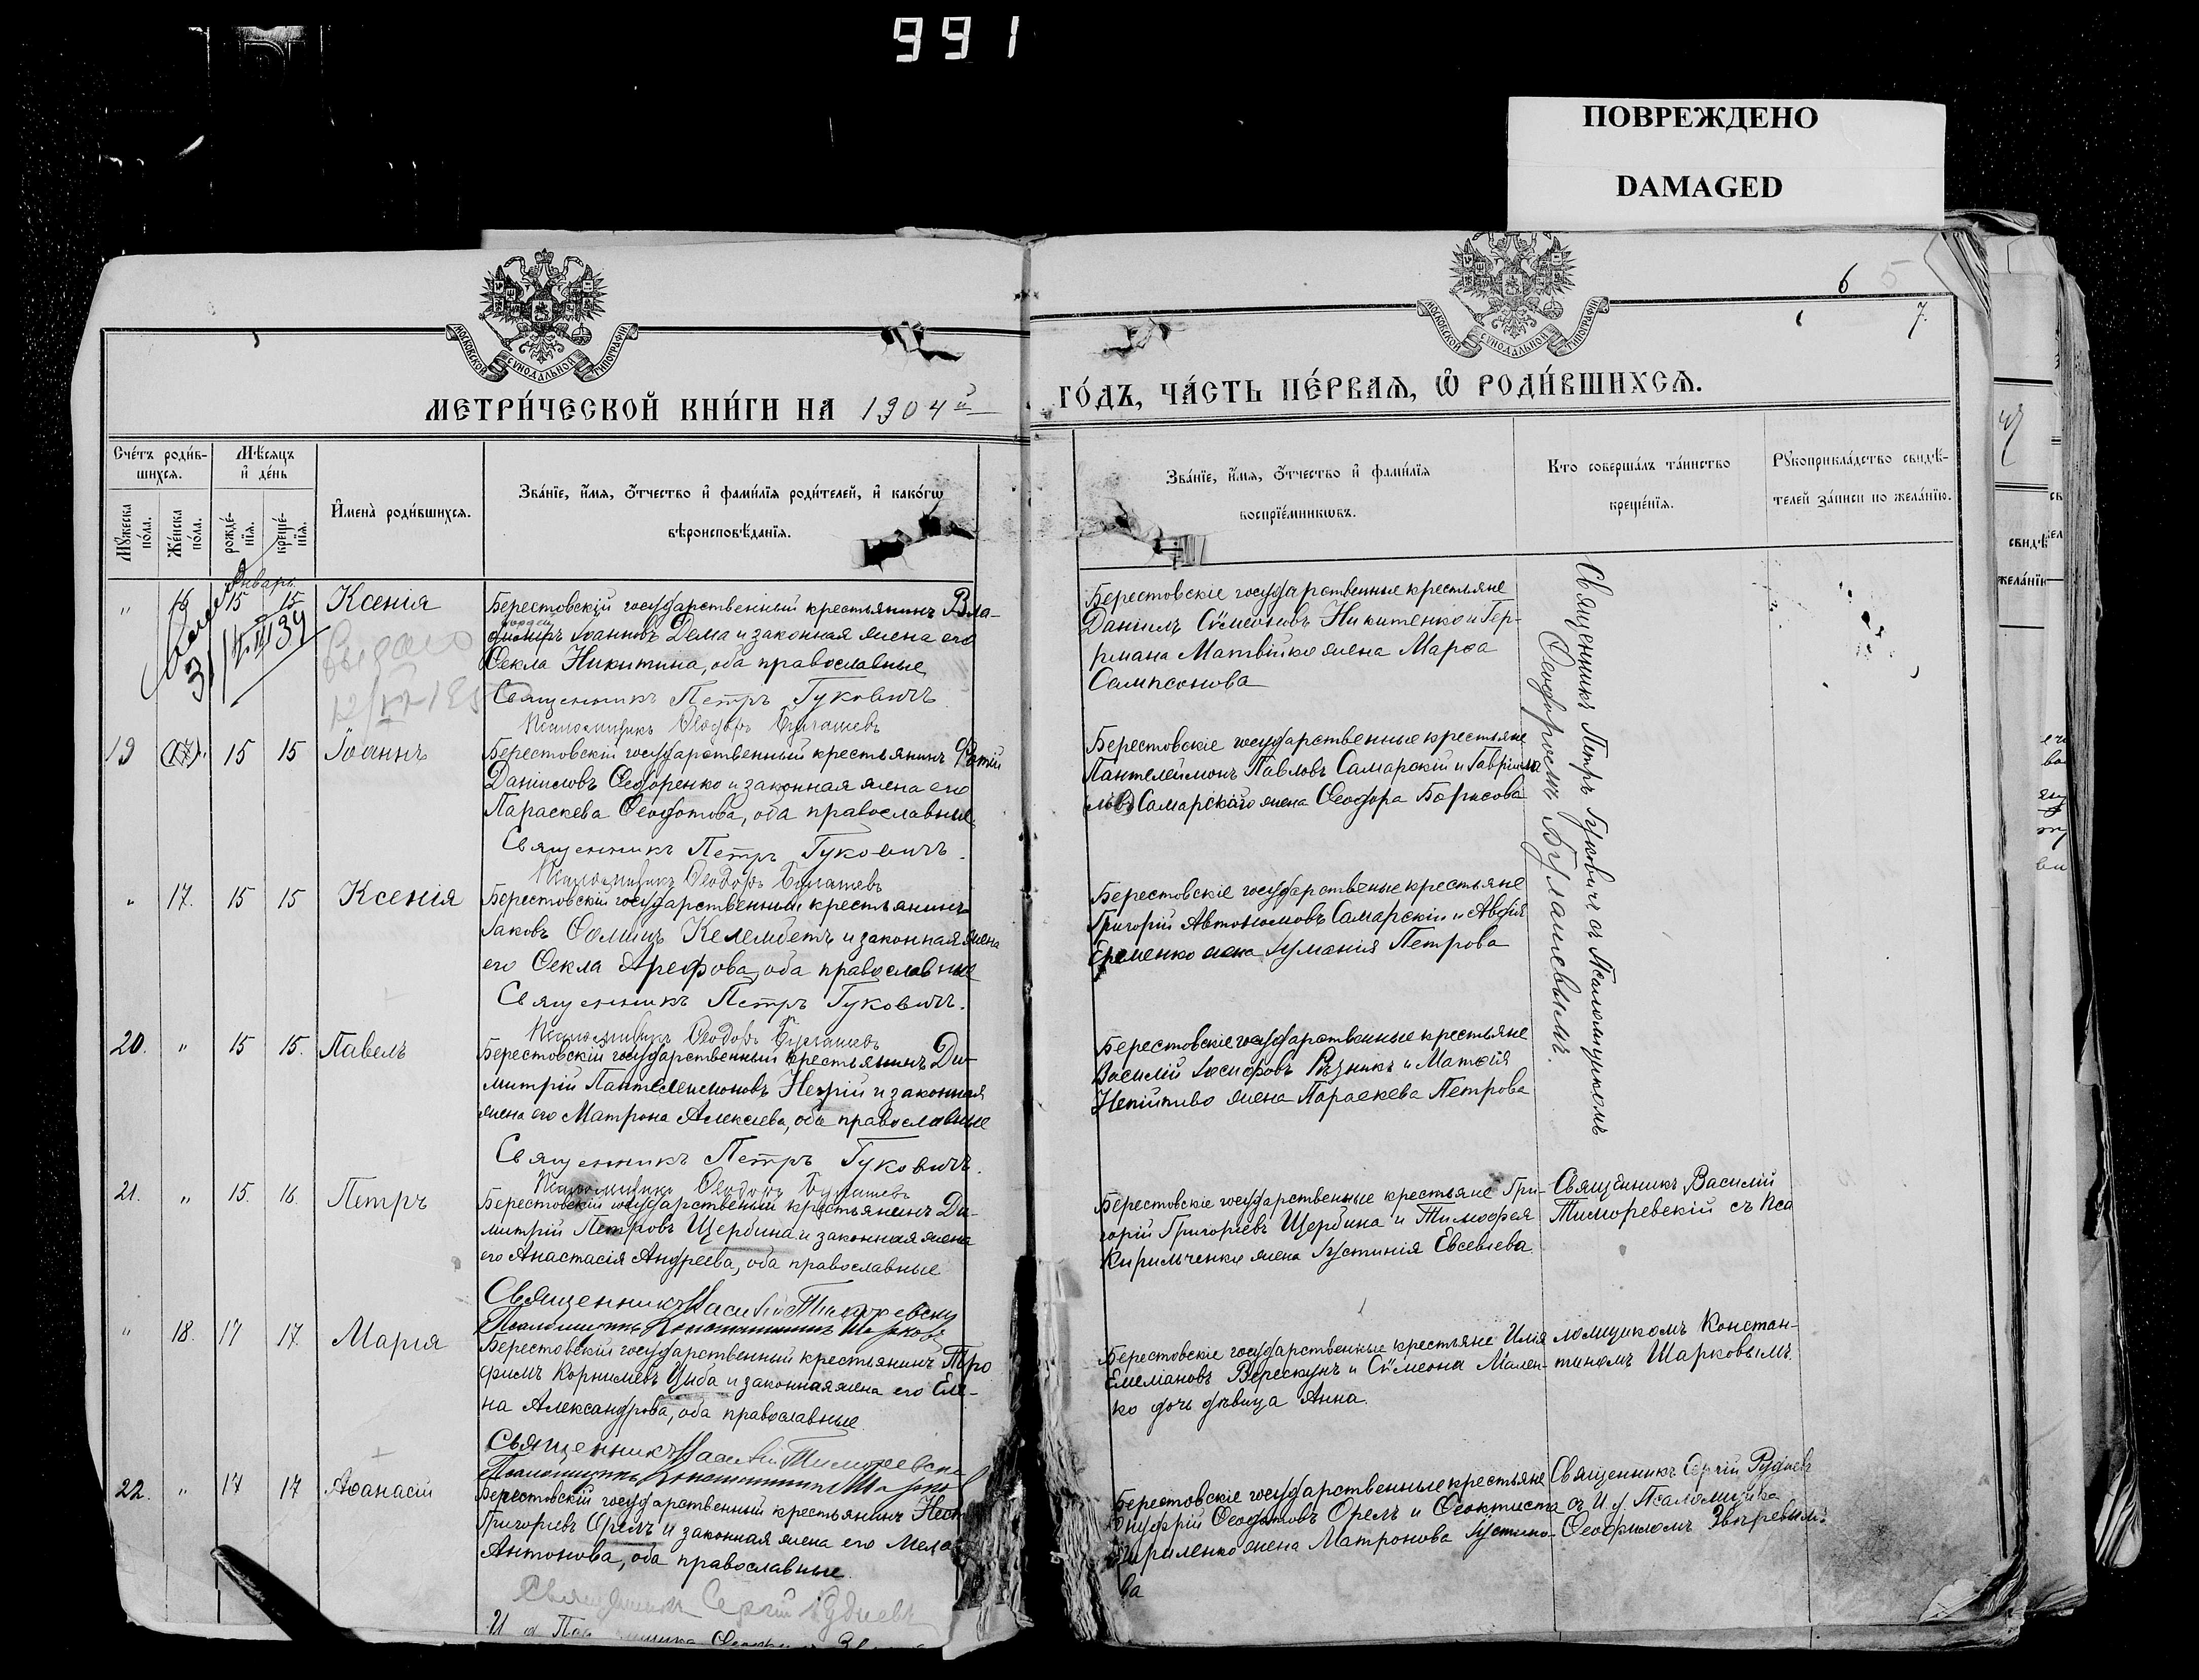 991
ПОВРЕЖДЕНО
DAMAGED
6 5
7.
МОСКОВСКОЙ СѴНОДАЛЬНОЙ ТИПОГРАФІИ
МОСКОВСКОЙ СѴНОДАЛЬНОЙ ТИПОГРАФІИ
МЕТРИ́ЧЕСКОЙ КНИ́ГИ НА 1904й
ГО́ДЪ, ЧА́СТЬ ПЕ́РВАѦ, Ѡ҆ РОДИ́ВШИХСѦ.
Сче́тъ роди́в-
шихся.
Мѣ́сяцъ
и҆ де́нь
Мꙋ́жеска по́ла.
Же́нска по́ла.
рожде́-
нїя.
креще́-
нїя.
И҆мена̀ роди́вшихся.
Зва́нїе, и҆́мя, о҆́тчество и҆ фами́лїя роди́телей, и҆ како́гѡ
вѣроисповѣ́данїя.
Зва́нїе, и҆́мя, о҆́тчество и҆ фами́лїя
воспрїе́мникѡвъ.
Кто соверша́лъ та́инство
креще́нїя.
Рꙋкоприкла́дство свидѣ́-
телей за́писи по жела́нїю.
Январь
" 16 15 15 Ксенія
Берестовскій государственный крестьянинъ Вла-
диміръ Іоанновъ Дема и законная жена его
Ѳекла Никитина, оба православные
Священникъ Петръ Гуковичъ
Псаломщикъ Ѳеодоръ Булашевъ
Берестовскіе государственные крестьяне
Даніилъ Сѵмеоновъ Никитенко и Гер-
мана Матвійко жена Марѳа
Сампсонова
Священникъ Петръ Гуковичъ съ Псаломщикомъ
Ѳеодоромъ Булашевымъ.
19 (17). 15 15 Іоаннъ
Берестовскій государственный крестьянинъ Фотій
Даніиловъ Ѳедоренко и законная жена его
Параскева Ѳеодотова, оба православные.
Священникъ Петръ Гуковичъ.
Псаломщикъ Ѳеодоръ Булашевъ
Берестовскіе государственные крестьяне
Пантелеймонъ Павловъ Самарскій и Гавріила
Самарскаго жена Ѳеодора Борисова
" 17. 15 15 Ксенія
Берестовскій государственный крестьянинъ
Іаковъ Ѳоминъ Келембетъ и законная жена
его Ѳекла Арефова, оба православные
Священникъ Петръ Гуковичъ.
Псаломщикъ Ѳеодоръ Булашевъ
Берестовскіе государственные крестьяне
Григорій Автономовъ Самарскій и Авдія
Еременко жена Іуліанія Петрова
20. " 15 15. Павелъ
Берестовскій государственный крестьянинъ Ди-
митрій Пантелеимоновъ и законная
жена его Матрона Алексіева, оба православные
Священникъ Петръ Гуковичъ.
Псаломщикъ Ѳеодоръ Булашевъ
Берестовскіе государственные крестьяне
Василій Іосифовъ Рѣзникъ и Матѳія
Непійпиво жена Параскева Петрова
21. " 15. 16. Петръ
Берестовскій государственный крестьянинъ Ди-
митрій Петровъ Щербина и законная жена
его Анастасія Андреева, оба православные
Священникъ Василій Тиморевскій
Псаломщикъ Константинъ Шарковъ
Берестовскіе государственные крестьяне Гри-
горій Григоріевъ Щербина и Тимоѳея
Кирильченки жена Іустинія Евсевіева.
Священникъ Василій
Тиморевскій съ Пса
" 18. 17 17. Марія
Берестовскій государственный крестьянинъ Тро
фимъ Корниліевъ Цыба и законная жена его Еле-
на Александрова, оба православные.
Священникъ Василій Тиморевскій
Псаломщикъ Константинъ Шарковъ
Берестовскіе государственные крестьяне Илія
Емеліановъ Верескунъ и Сѵмеона Мален-
ко дочь дѣвица Анна.
ломщикомъ Констан-
тиномъ Шарковымъ.
22. " 17 17 Аѳанасій
Берестовскій государственный крестьянинъ Нест
Григоріевъ Орелъ и законная жена его Мела
Антонова, оба православные.
Священникъ Сергій Рудневъ
И д Пса
Берестовскіе государственные крестьяне
Онуфрій Ѳеодотовъ Орелъ и Ѳеоктиста
Кириленко жена Матронова Іустино-
ва
Священникъ Сергій Рудневъ
съ И. д Псаломщика
Ѳеофиломъ Звѣревымъ